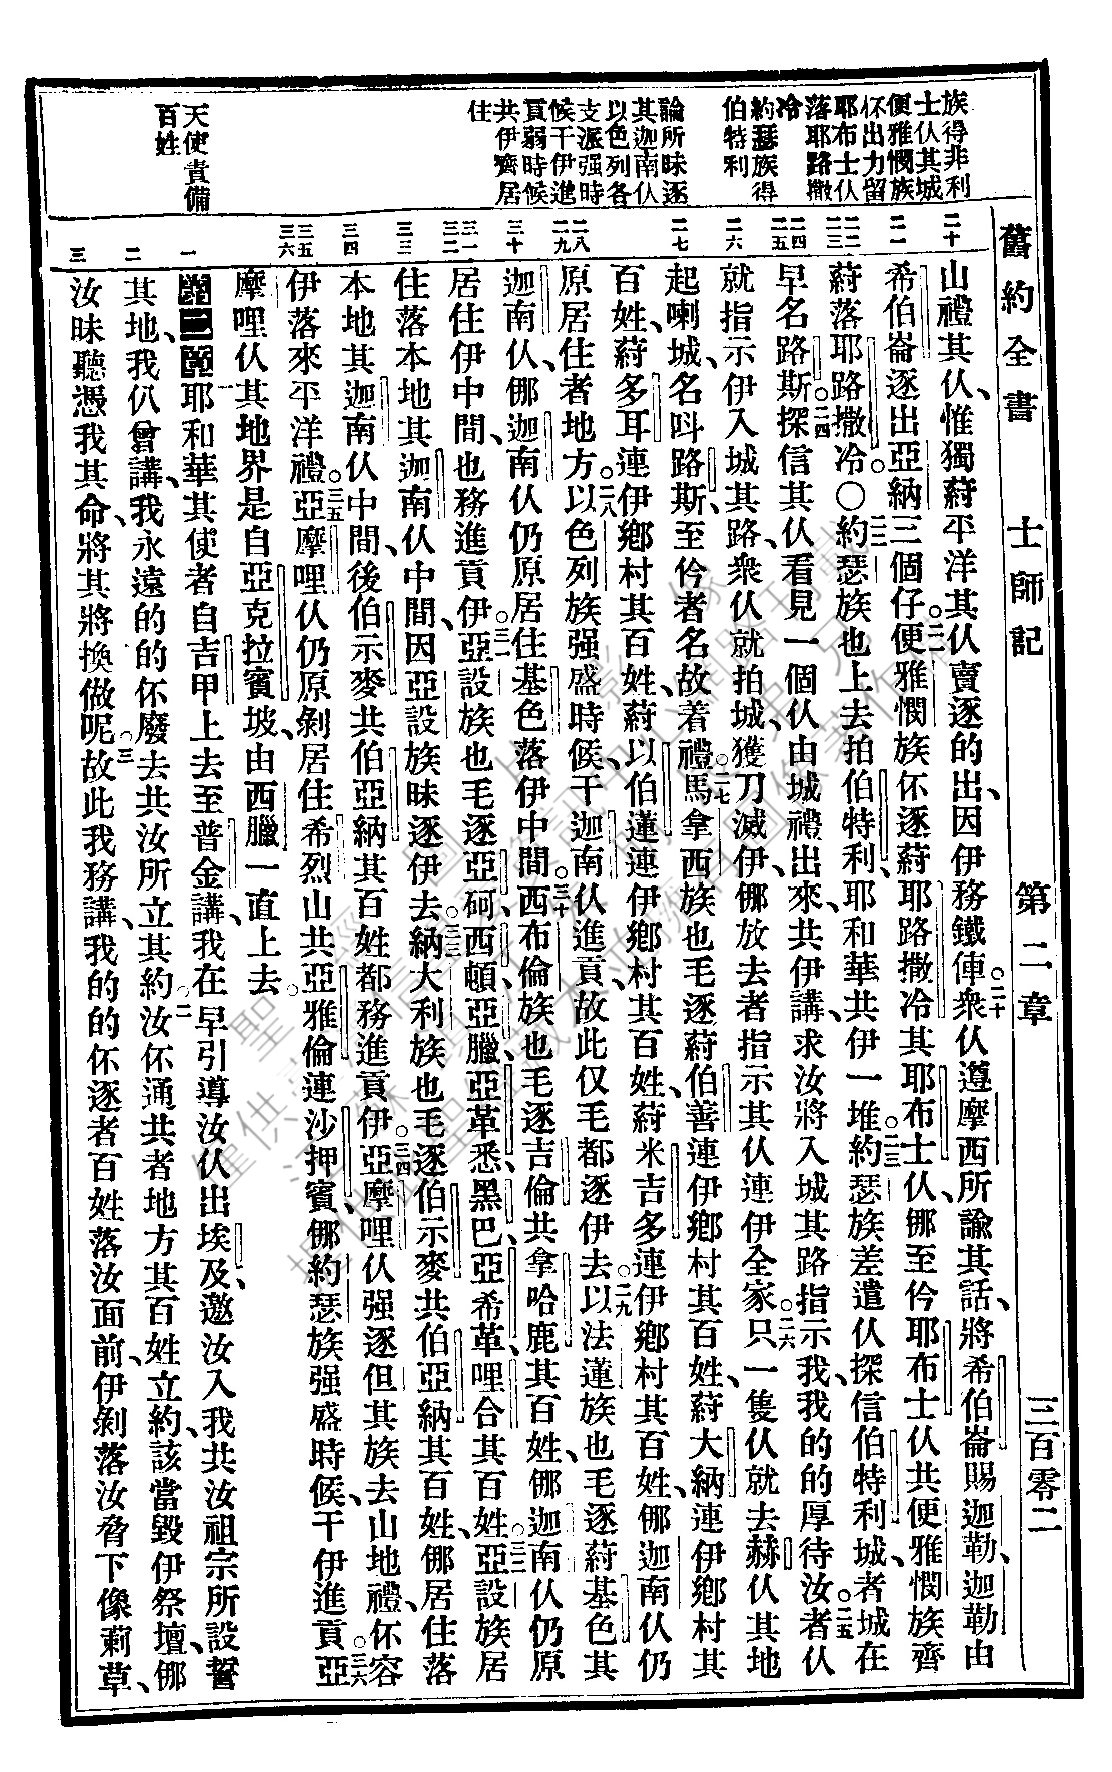 舊約全書 士師記 第二章 三百零二
族得非利
士仈其城
便雅憫族
伓出力留
耶布士仈
落耶路撒
冷
約瑟族得
伯特利
論所昧逐
其迦南仈
以色列各
支派强時
候干伊進
貢弱時候
共伊齊居
住
天使責備
百姓
二十
二一
二二
二三
二四
二五
二六
二七
二八
二九
三十
三一
三二
三三
三四
三五
三六
一
二
三
山禮其仈、惟獨蔚平洋其仈賣逐的出、因伊務鐵俥。二十衆仈遵摩西所諭其話、將希伯崙賜迦勒、迦勒由
希伯崙逐出亞納三個仔。二一便雅憫族伓逐蔚耶路撒冷其耶布士仈、倻至伶耶布士仈共便雅憫族齊
蔚落耶路撒冷。○二二約瑟族也上去拍伯特利、耶和華共伊一堆。二三約瑟族差遣仈探信伯特利城、者城在
早名路斯。二四探信其仈看見一個仈由城禮出來、共伊講、求汝將入城其路指示我、我的的厚待汝。二五者仈
就指示伊入城其路、衆仈就拍城、獲刀滅伊、倻放去者指示其仈連伊全家。二六只一隻仈就去赫仈其地
起喇城、名呌路斯、至伶者名故着禮。二七馬拿西族也毛逐蔚伯善連伊鄕村其百姓、蔚大納連伊鄕村其
百姓、蔚多耳連伊鄕村其百姓、蔚以伯蓮連伊鄕村其百姓、蔚米吉多連伊鄕村其百姓、倻迦南仈仍
原居住者地方。二八以色列族强盛時候、干迦南仈進貢、故此仅毛都逐伊去。二九以法蓮族也毛逐蔚基色其
迦南仈、倻迦南仈仍原居住基色落伊中間。三十西布倫族也毛逐吉倫共拿哈鹿其百姓、倻迦南仈仍原
居住伊中間、也務進貢伊。三一亞設族也毛逐亞柯、西頓、亞臘、亞革悉、黑巴、亞希革、哩合其百姓。三二亞設族居
住落本地其迦南仈中間、因亞設族昧逐伊去。三三納大利族也毛逐伯示麥共伯亞納其百姓、倻居住落
本地其迦南仈中間、後伯示麥共伯亞納其百姓都務進貢伊。三四亞摩哩仈强逐但其族去山地禮、伓容
伊落來平洋禮。三五亞摩哩仈仍原剝居住希烈山共亞雅倫連沙押賓、倻約瑟族强盛時候、干伊進貢。三六亞
摩哩仈其地界是自亞克拉賓坡、由西臘一直上去。
第二章 耶和華其使者自吉甲上去至普金講、我在早引導汝仈出埃及、邀汝入我共汝祖宗所設誓
其地、我仈曾講、我永遠的的伓廢去共汝所立其約。二汝伓通共者地方其百姓立約、該當毀伊祭壇、倻
汝昧聽憑我其命、將其將換做呢。三故此我務講、我的的伓逐者百姓落汝面前、伊剝落汝脅下像莿草、